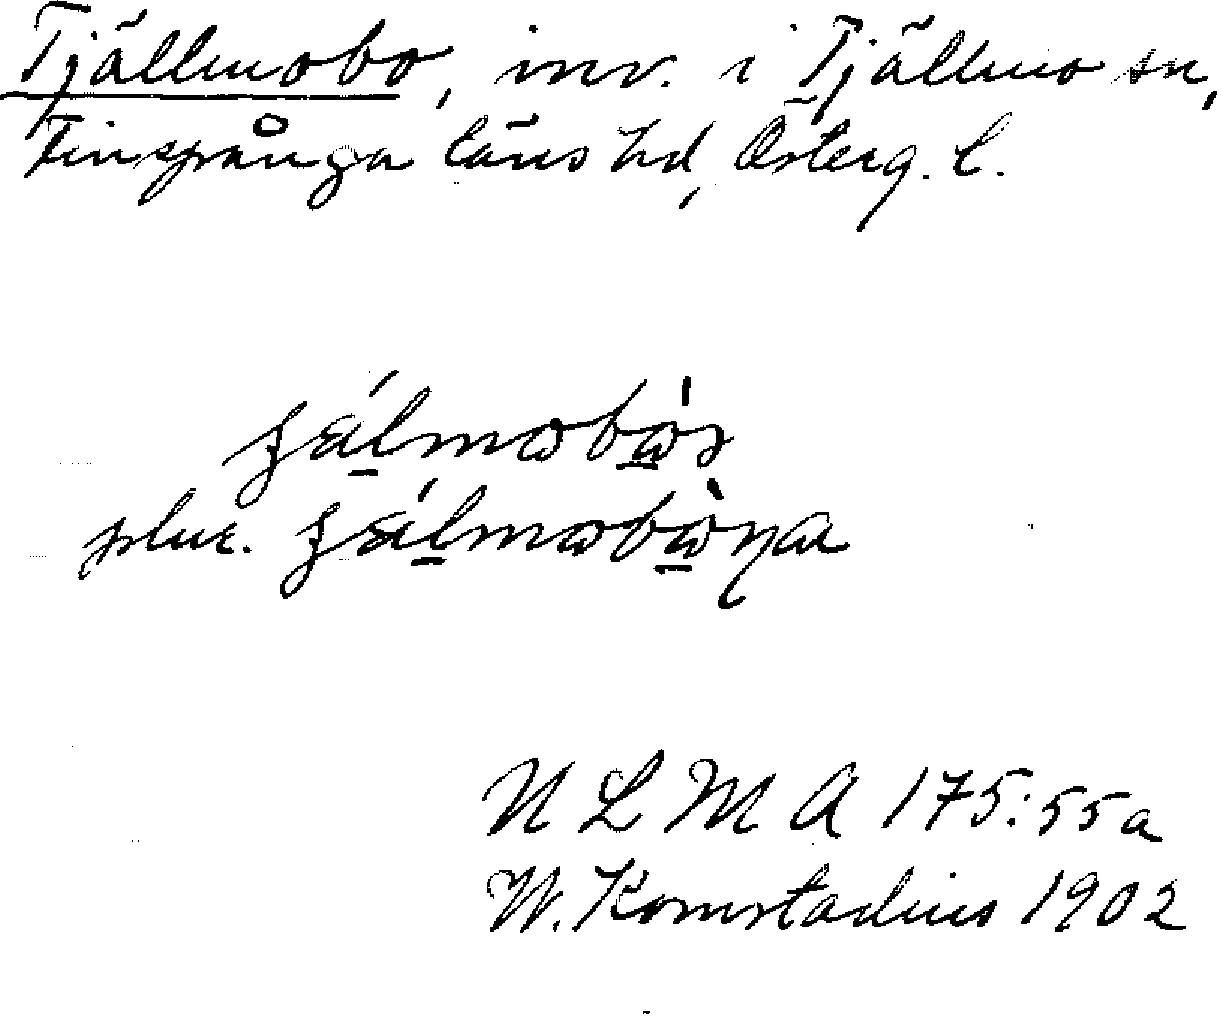 Tjällmobo, inv. i Tjällmo sn,
Finspånga läns hd, Österg. l.
plur.
ULMA 175:55a
W. Komstadius 1902